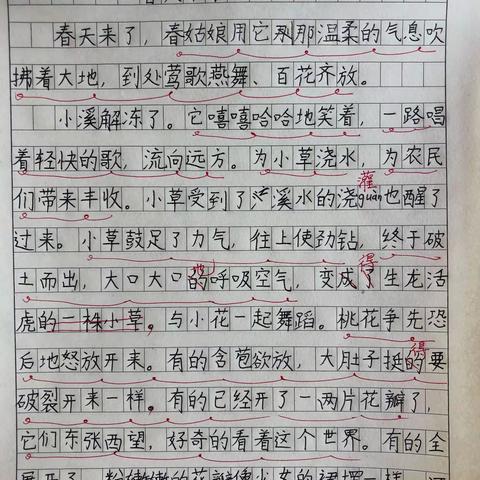 春天来了，春姑娘用它那温柔的气息吹
拂着大地，到处莺歌燕舞、百花齐放。
小溪解冻了。它嘻嘻哈哈地笑着，一路唱
着轻快的歌，流向远方。为小草浇水，为农民
灌
们带来丰收。小草受到了溪水的浇guàn也醒了
过来。小草鼓足了力气，往上使劲钻，终于破
地 得
土而出，大口大口的呼吸空气，变成了生龙活
虎的一株小草，与小花一起舞蹈。桃花争先恐
得
后地怒放开来。有的含苞欲放，大肚子挺的要
破裂开来一样。有的已经开了一两片花瓣了，
它们东张西望，好奇的看着这个世界。有的全